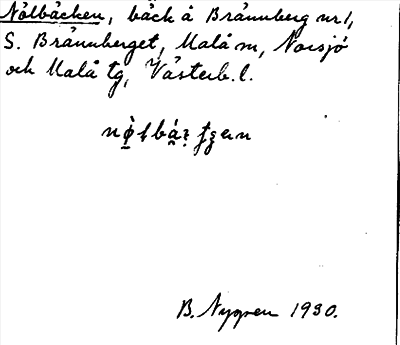 Nålbäcken, bäck å Brännberg nr 1,
S. Brännberget, Malå sn, Norsjö
och Malå tg, Västerb. l.
B. Nygren 1930.